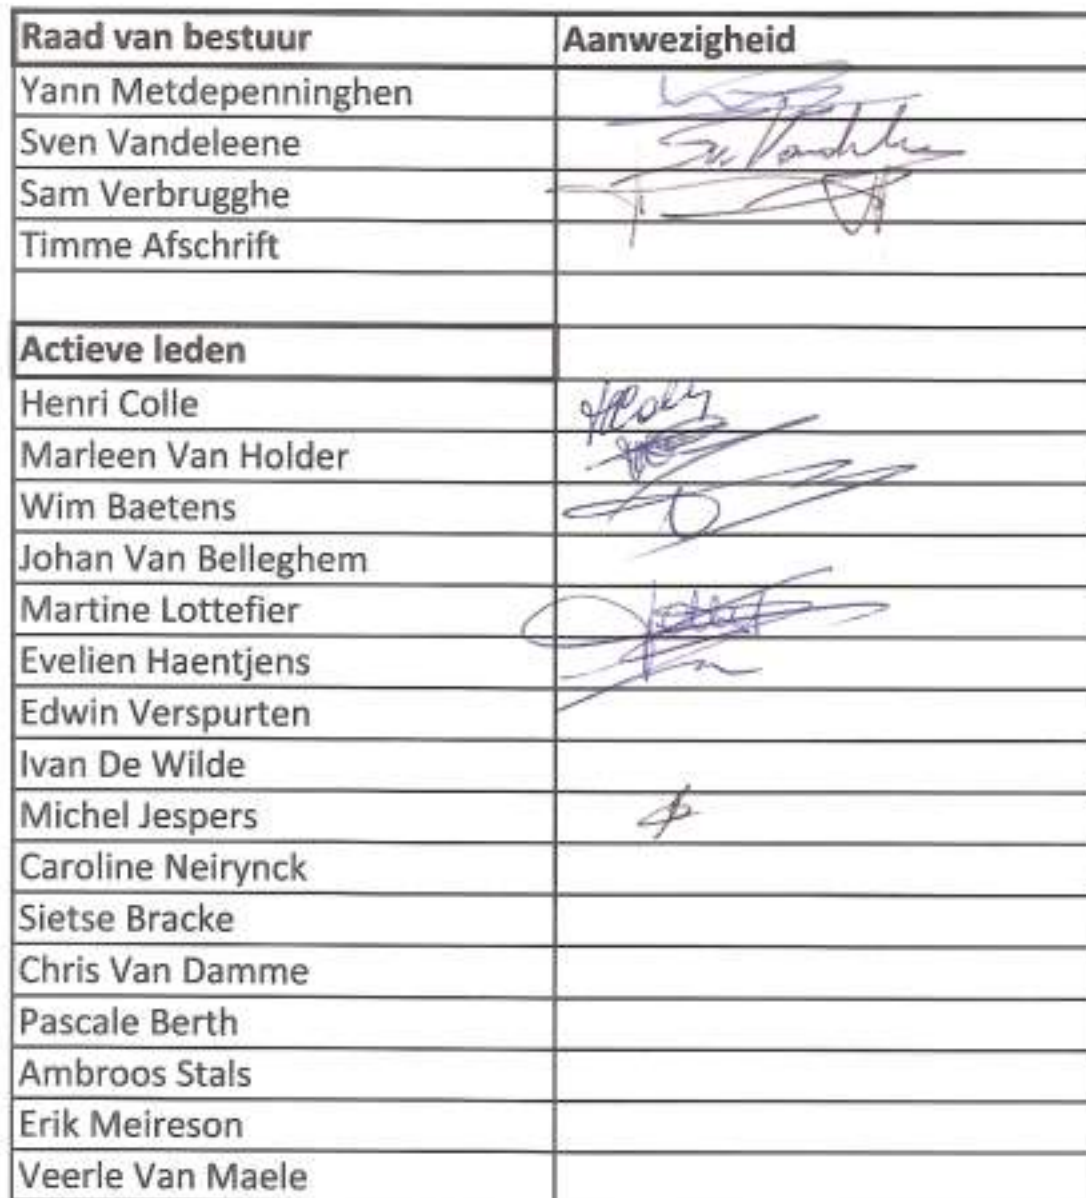 Raad van bestuur Aanwezigheid
Yann Metdepenninghen
Sven Vandeleene
Sam Verbrugghe
Timme Afschrift
Actieve leden
Henri Colle
Marleen Van Holder
Wim Baetens
Johan Van Belleghem
Martine Lottefier
Evelien Haentjens
Edwin Verspurten
Ivan De Wilde
Michel Jespers
Caroline Neirynck
Sietse Bracke
Chris Van Damme
Pascale Berth
Ambroos Stals
Erik Meireson
Veerle Van Maele